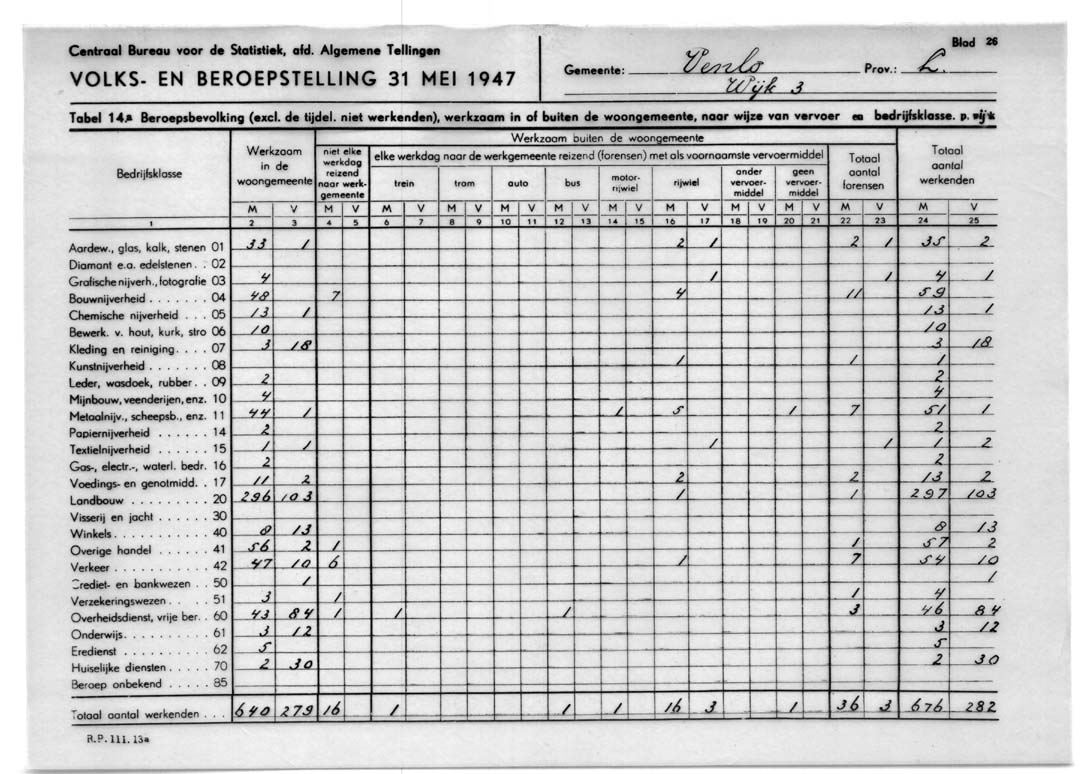 Centraal Bureau voor de Statistiek, afd. Algemene Tellingen
VOLKS- EN BEROEPSTELLING 31 MEI 1947
Gemeente: Venlo Prov.: L.
Wijk 3
Blad 26
Tabel 14.a Beroepsbevolking (excl. de tijdel. niet werkenden), werkzaam in of buiten de woongemeente, naar wijze van vervoer en bedrijfsklasse. p. wijk
Bedrijfsklasse
Werkzaam in de woongemeente
Werkzaam buiten de woongemeente
niet elke werkdag reizend naar werk-gemeente
elke werkdag naar de werkgemeente reizend (forensen) met als voornaamste vervoermiddel
trein tram auto bus motor-rijwiel rijwiel ander vervoer-middel geen vervoer-middel
Totaal aantal forensen
Totaal aantal werkenden
M V M V M V M V M V M V M V M V M V M V M V M V
1 2 3 4 5 6 7 8 9 10 11 12 13 14 15 16 17 18 19 20 21 22 23 24 25
Aardew., glas, kalk, stenen 01 33 1 2 1 2 1 35 2
Diamant e.a. edelstenen . . 02
Grafische nijverh., fotografie 03 4 1 1 4 1
Bouwnijverheid . . . . . . . 04 48 7 4 11 59
Chemische nijverheid . . 05 13 1 13 1
Bewerk. v. hout, kurk, stro 06 10 10
Kleding en reiniging. . . . 07 3 18 3 18
Kunstnijverheid . . . . . . . 08 1 1 1
Leder, wasdoek, rubber . . 09 2 2
Mijnbouw, veenderijen, enz. 10 4 4
Metaalnijv., scheepsb., enz. 11 44 1 1 5 1 7 51 1
Papiernijverheid . . . . . . 14 2 2
Textielnijverheid . . . . . . 15 1 1 1 1 1 2
Gas-, electr.-, waterl. bedr. 16 2 2
Voedings- en genotmidd. . 17 11 2 2 2 13 2
Landbouw . . . . . . . . . 20 296 103 1 1 297 103
Visserij en jacht . . . . . . 30
Winkels . . . . . . . . . . 40 8 13 8 13
Overige handel . . . . . . 41 56 2 1 1 57 2
Verkeer . . . . . . . . . . 42 47 10 6 1 7 54 10
Crediet- en bankwezen . . 50 1 1
Verzekeringswezen . . . . 51 3 1 1 4
Overheidsdienst, vrije ber. . 60 43 84 1 1 1 3 46 84
Onderwijs. . . . . . . . . . 61 3 12 3 12
Eredienst . . . . . . . . . 62 5 5
Huiselijke diensten . . . . . 70 2 30 2 30
Beroep onbekend . . . . . 85
Totaal aantal werkenden . . . 640 279 16 1 1 1 16 3 1 36 3 676 282
R.P. 111. 13a